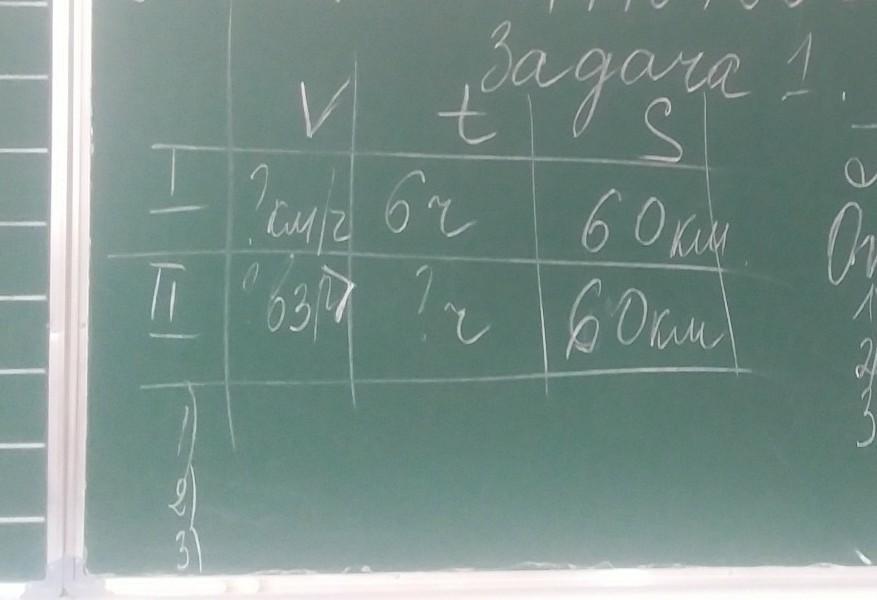 Задача 1.
V t S
I ?км/ч 6ч 60км.
II ? ?ч 60км
1)
2)
3)
1
2
3